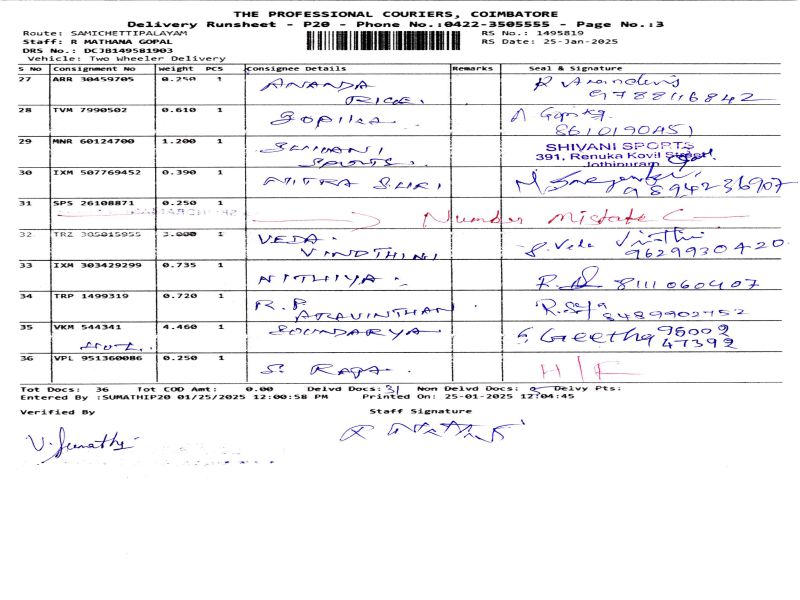 THE PROFESSIONAL COURIERS, COIMBATORE
Delivery Runsheet - P20 - Phone No.:0422-3505555 - Page No.:3
Route: SAMICHETTIPALAYAM RS No.: 1495819
Staff: R MATHANA GOPAL RS Date: 25-Jan-2025
DRS No.: DCJB149581903
Vehicle: Two Wheeler Delivery
S No Consignment No Weight PCS Consignee Details Remarks Seal & Signature
27 ARR 30459705 0.250 1 ANANDA
RICE. 9788116842
28 TVM 7990502 0.610 1 Gopika.
8610190451
29 MNR 60124700 1.200 1 SHIVANI SHIVANI SPORTS
SPORTS. 391, Renuka Kovil Street
Jothipuram
30 IXM 507769452 0.390 1 MITRA SURI
9894236907
31 SPS 26108871 0.250 1 Number mistake
32 TRZ 305015955 3.000 1 VEDA. S. Veda Vindthini
VINDTHINI 9629930420
33 IXM 303429299 0.735 1 NITHIYA. 8111060407
34 TRP 1499319 0.720 1 R.P
ARAVINTHAN 8489902752
35 VKM 544341 4.460 1 SOUNDARYA S. Geetha 95002
47392
36 VPL 951360086 0.250 1 S. RAJA. H/F
Tot Docs: 36 Tot COD Amt: 0.00 Delvd Docs: 31 Non Delvd Docs: 5 Delvy Pts:
Entered By :SUMATHIP20 01/25/2025 12:00:58 PM Printed On: 25-01-2025 12:04:45
Verified By Staff Signature
V. Sumathi